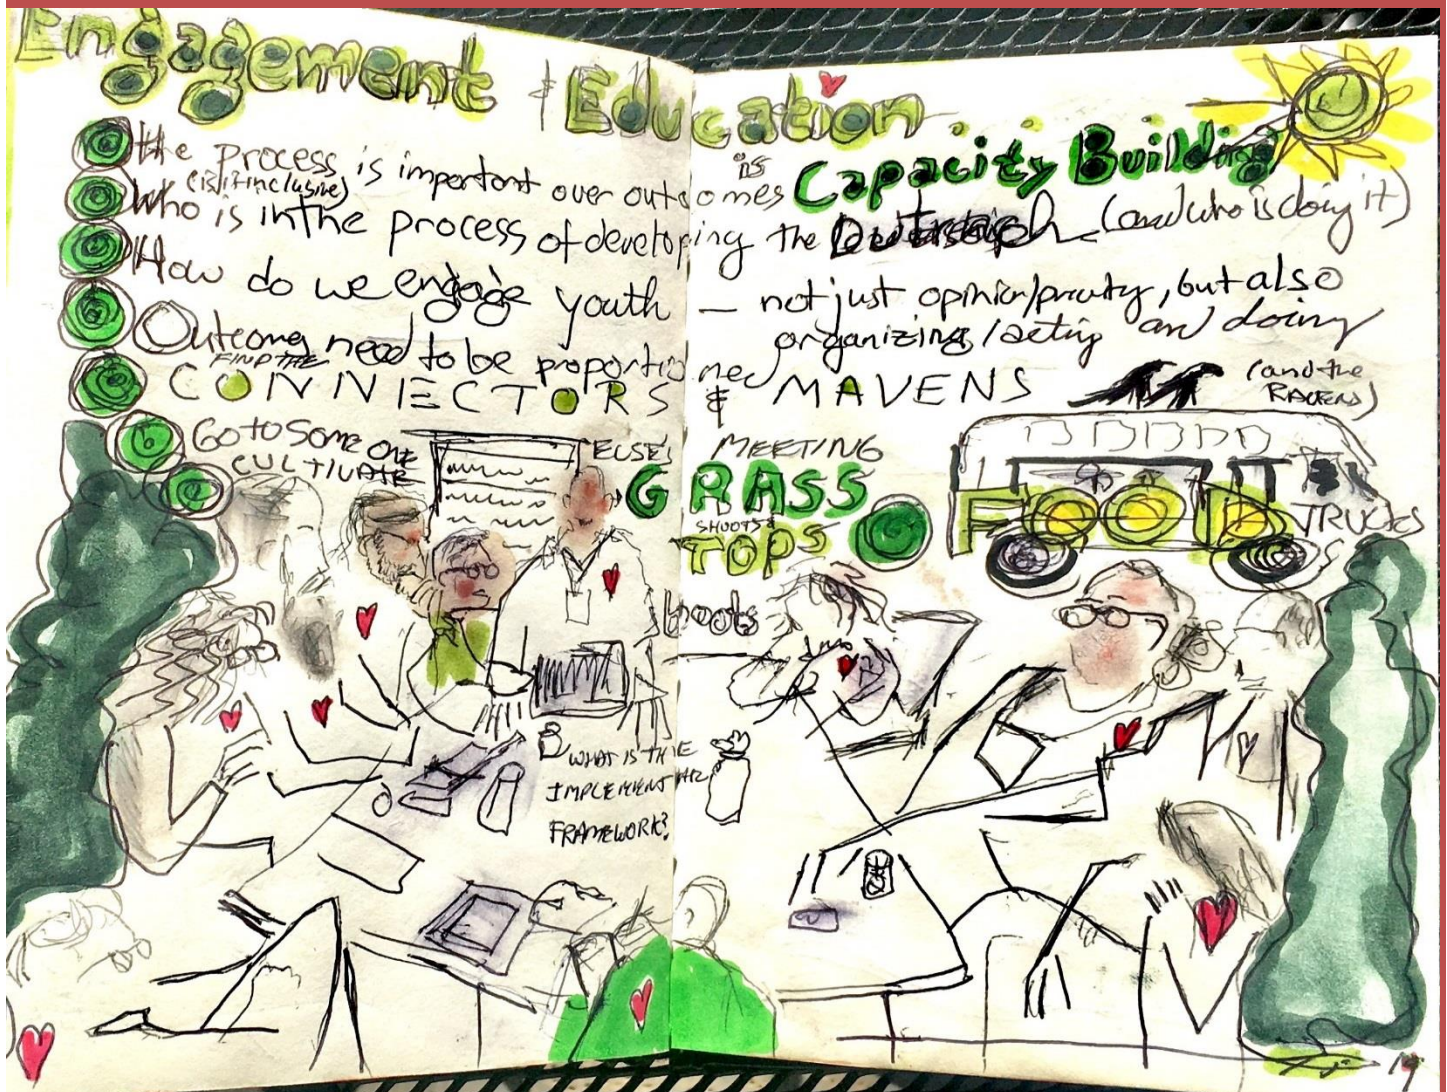 Engagement & Education
is Capacity Building
the process is important over outcomes
(is it inclusive)
who is in the process of developing the (and who is doing it)
How do we engage youth — not just opinion/ , but also
organizing/acting and doing
Outcomes need to be proportioned
FIND THE
CONNECTORS & MAVENS (and the RAVENS)
Go to Someone ELSE'S MEETING
CULTIVATE GRASS
SHOOTS &
TOPS
FOOD TRUCKS
boots
WHAT IS THE
IMPLEMENT
FRAMEWORK?